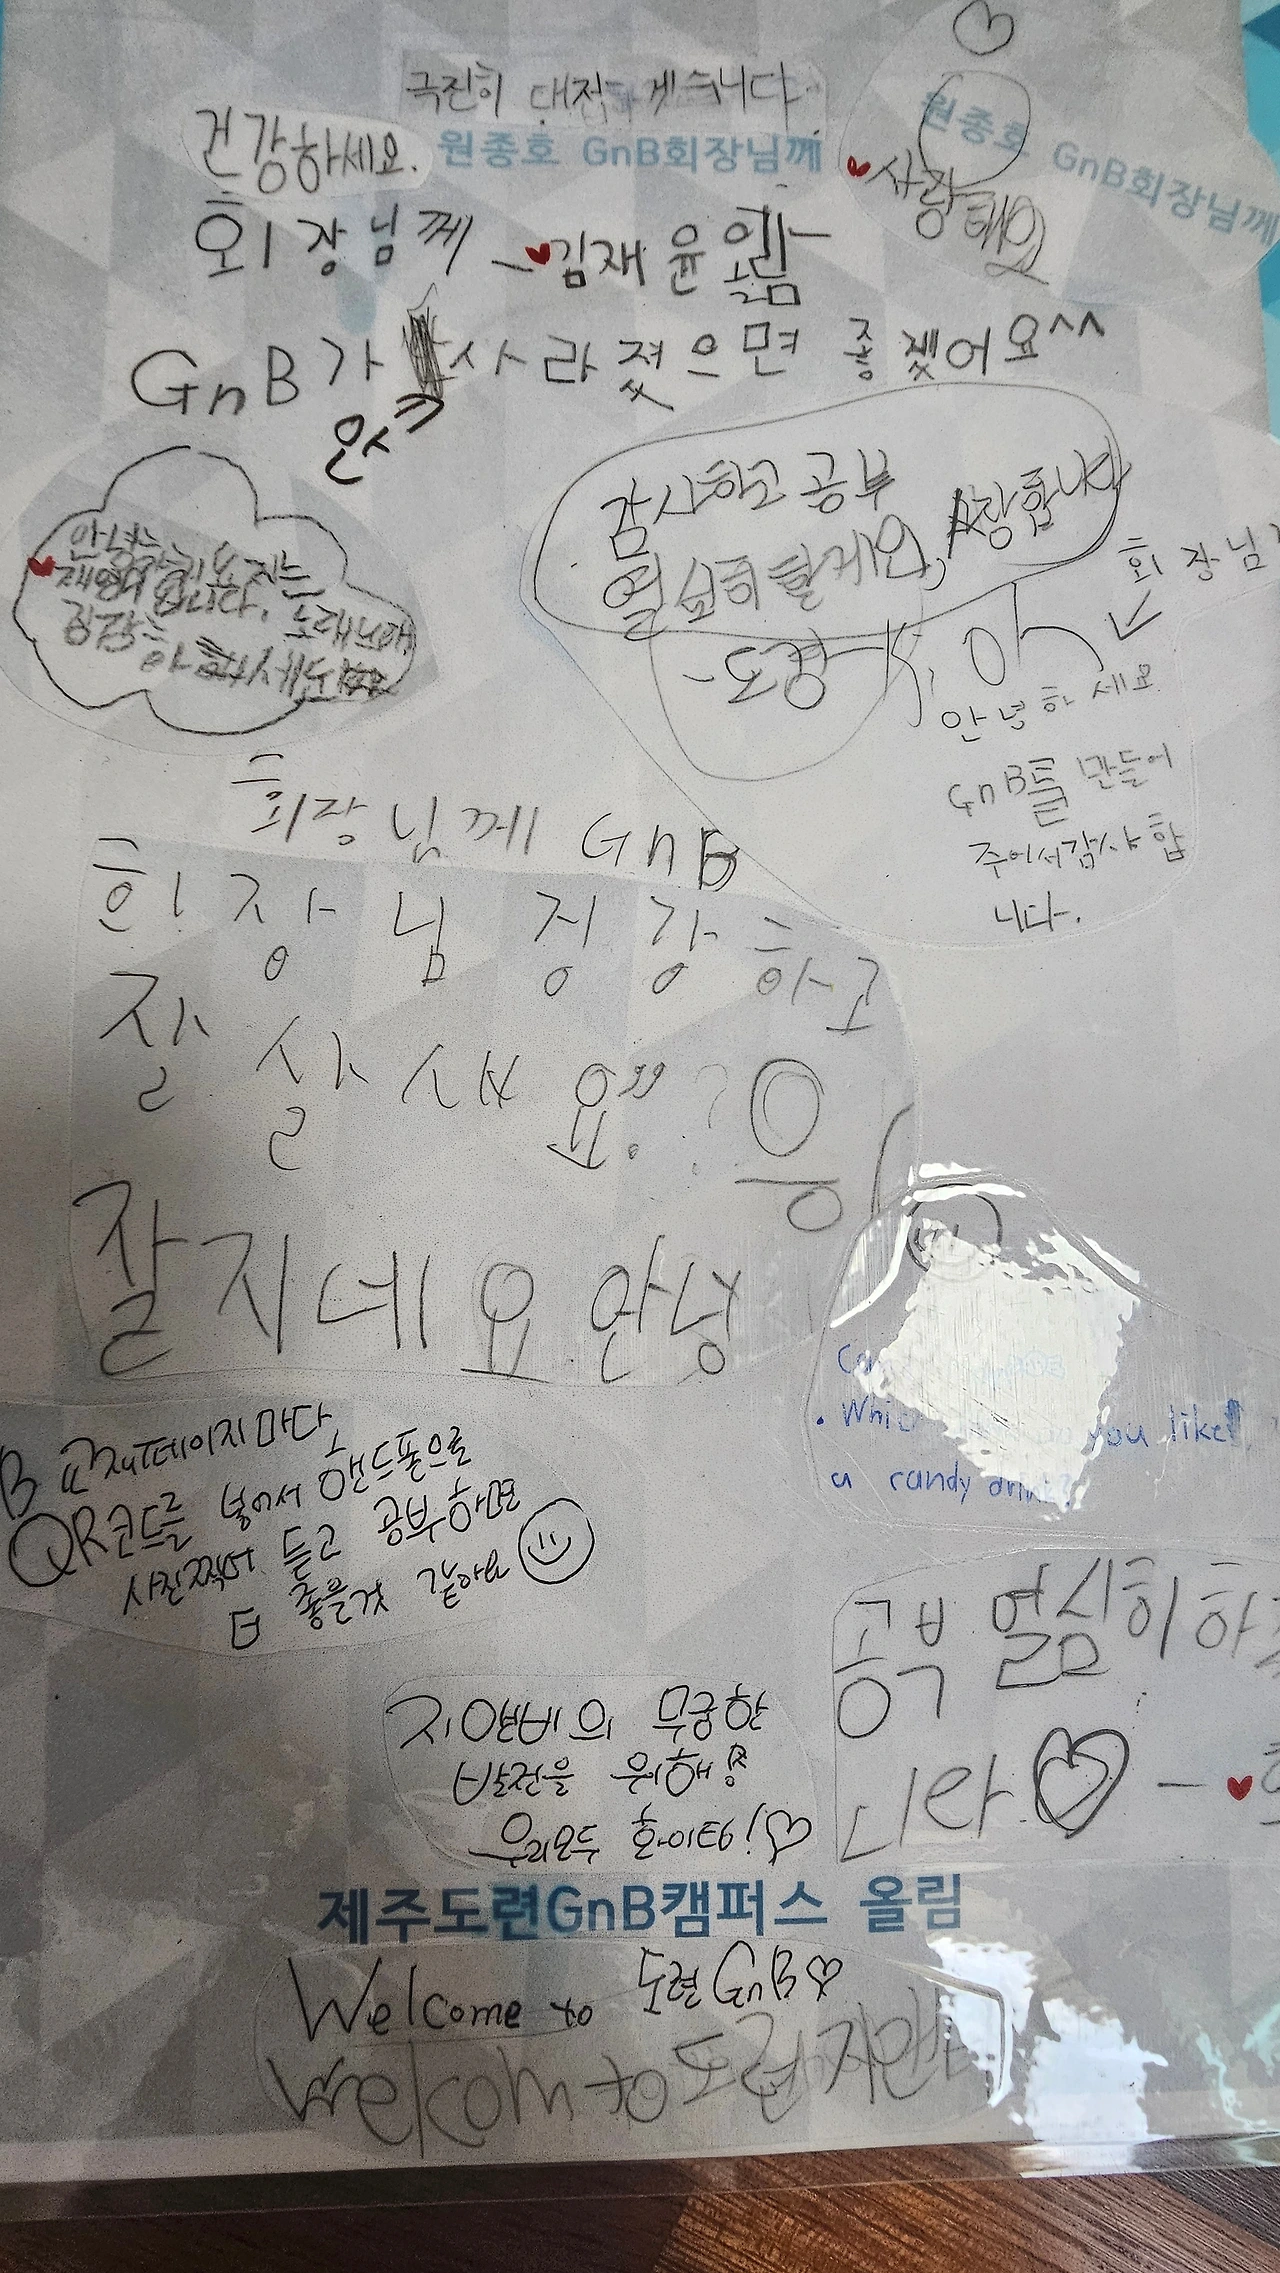 극진히 대접 게습니다.
건강하세요.
원종호 GnB회장님께
원종호 GnB회장님께
사랑해요
회장님께 - 김재윤 올림 -
GnB가 사라졌으면 좋겠어요^^
안녕하 저는
재 입니다. 노래
감사하고 공부
열심히 할게요,
-도경
회장님
안녕하세요
GnB를 만들어
주어서감사합
니다.
회장님께 GnB
회장님 정강하고
잘 살 요??응
잘지네요 안녕
B 교재페이지마다
QR코드를 넣어서 핸드폰으로
사진찍어 듣고 공부하면
더 좋을것 같아요
지앤비의 무궁한
발전을 위해
우리모두 화이팅!
공부 열심히 하
니다
제주도련GnB캠퍼스 올림
Welcome to 도련GnB
Welkom to 도련지앤
. you like
a candy